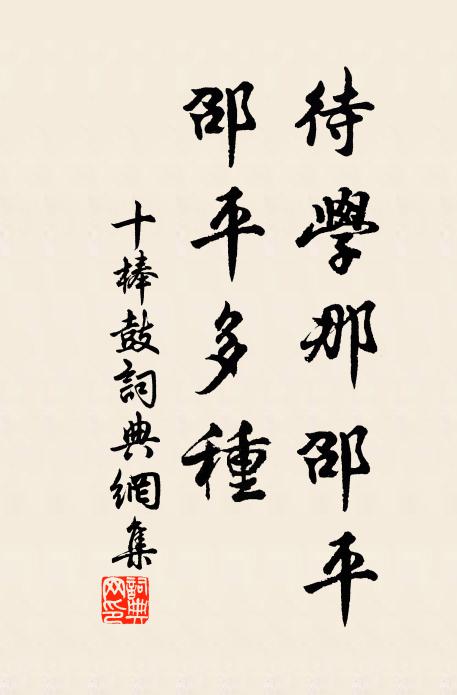 待學那邵平
邵平多種
十棒鼓詞典網集
詞典网印